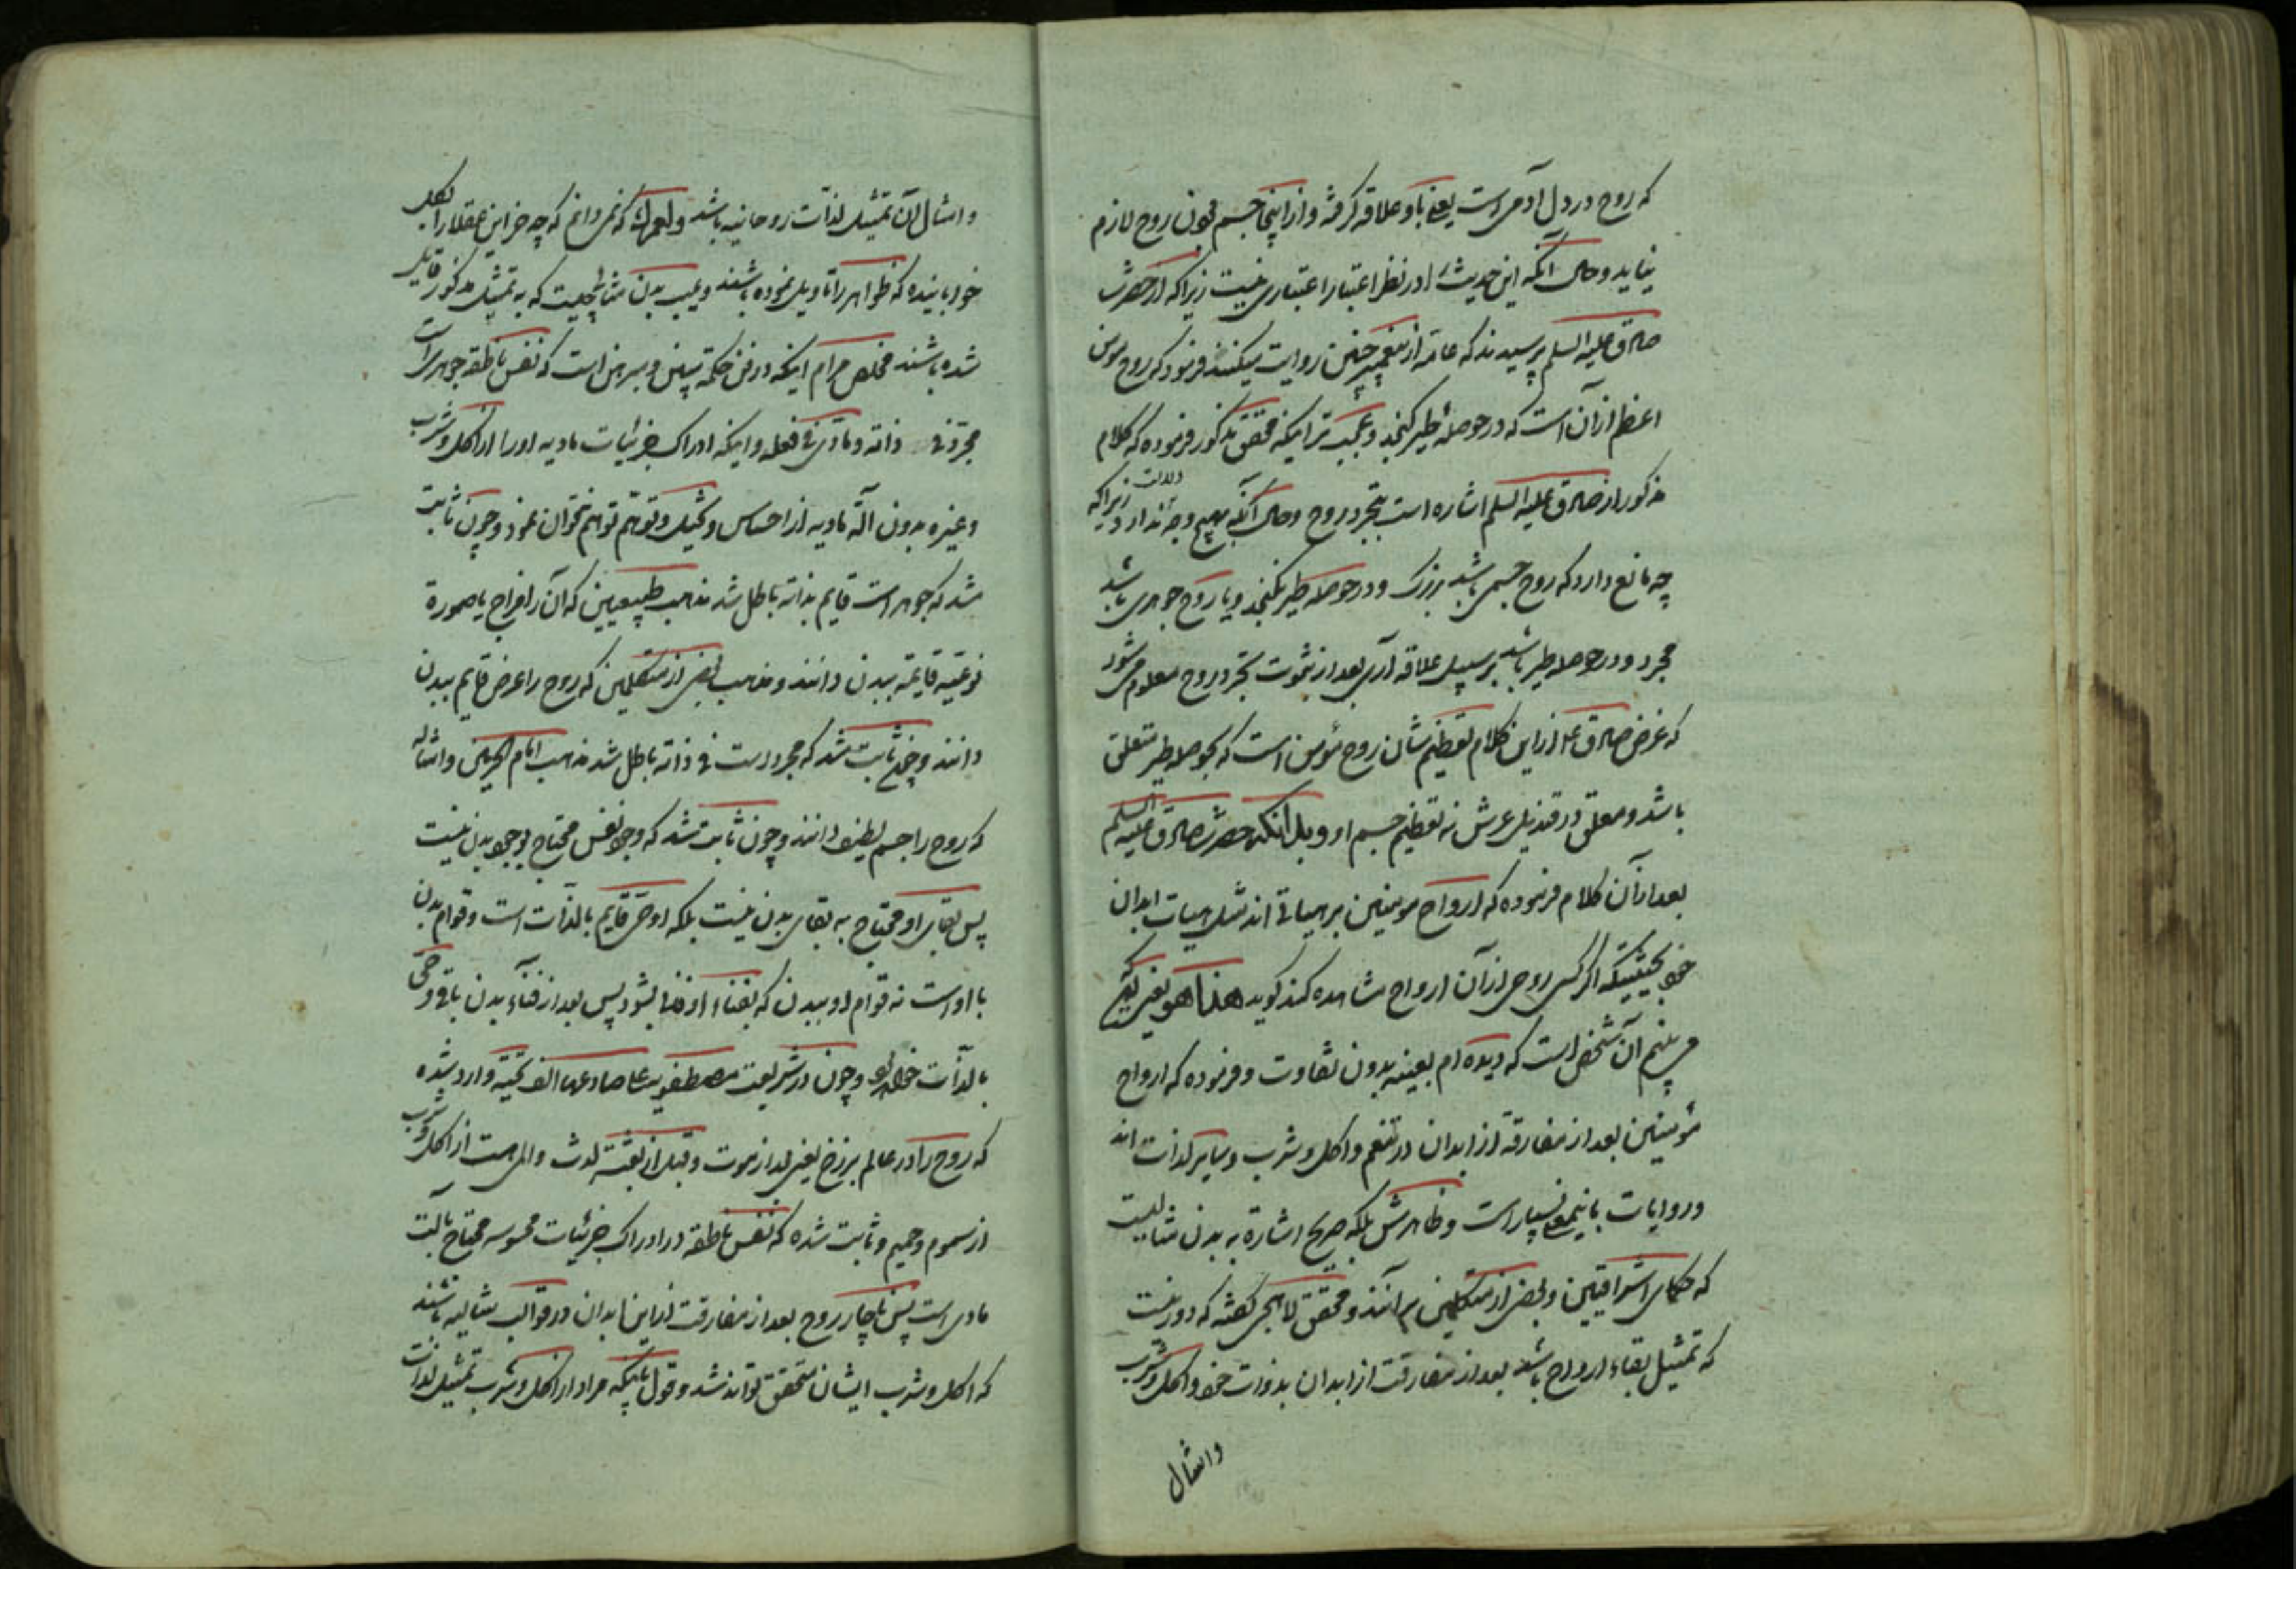 که روح در دل آدمی است یعنی باو علاقه گرفته و از اینجا جسم بودن روح لازم
نیاید و حال آنکه این حدیث را در نظر اعتبار اعتباری نیست زیرا که از حضرت
صادق علیه السلم پرسیدند که عامه از پیغمبر چنین روایت میکنند فرمود که روح مومن
اعظم از آن است که در حوصله طیر گنجد و عجیب تر اینکه محقق مذکور فرموده که کلام
مذکور از صادق علیه السلم اشاره است بتجرد روح و حال آنکه بهیچ وجه دلالت ندارد زیرا که
چه مانع دارد که روح جسمی باشد بزرگ و در حوصله طیر نگنجد و یا روح جوهری باشد
مجرد و در حوصله طیر باشد بر سبیل علاقه آری بعد از ثبوت تجرد روح معلوم می شود
که غرض صادق ع از این کلام تعظیم شان روح مؤمن است که بحوصله طیر متعلق
باشد و معلق در قندیل عرش نه تعظیم جسم او و بدانکه حضرت صادق علیه السلم
بعد از آن کلام فرموده که ارواح مومنین بر هیاتی اند مثل هیات ابدان
خود بحیثیتیکه اگر کسی روحی از آن ارواح مشاهده کند گوید هذا هو یعنی
می بینم آن شخص است که دیده ام بعینه بدون تفاوت و فرموده که ارواح
مؤمنین بعد از مفارقة از ابدان در تنعم و اکل و شرب و سایر لذات اند
و روایات باینمعنی بسیار است و ظاهرش بلکه صریح اشارة به بدن مثالیست
که حکمای اشراقیین و بعضی از متکلمین بر آنند و محقق لاهیجی گفته که دور نیست
که تمثیل بقاء ارواح باشد بعد از مفارقت از ابدان بذوات خود و اکل و شرب
وامثال
وامثال آن تمثیل لذات روحانیه باشد و لعمرک که نمی دانم که چه چیز این عقلا را بکل
خوابانیده که ظواهر را تاویل نموده باشند و عیب بدن مثالی چیست که به تمثیل مذکور قایل
شده باشند مخلص مرام اینکه در فن حکمة مبین و مبرهن است که نفس ناطقه جوهری است
مجرد فی ذاته و مادی فی فعله و اینکه ادراک جزئیات مادیه او را از اکل و شرب
و غیره بدون آلة مادیه از احساس و تخیل و توهم توانم نتوان نمود و چون ثابت
شد که جوهر است قایم بذاته باطل شد مذهب طبیعیین که آن را مزاج یا صورة
نوعیه قایمه ببدن دانند و مذهب بعضی از متکلمین که روح را عرض قایم ببدن
دانند و چون ثابت شد که مجرد است فی ذاته باطل شد مذهب امام الحرمین و امثاله
که روح را جسم لطیف دانند و چون ثابت شد که وجود نفس محتاج بوجود بدن نیست
پس بقای او محتاج به بقای بدن نیست بلکه او حی قایم بالذات است و قوام بدن
با اوست نه قوام او ببدن که بفناء او فنا بشود پس بعد از فناء بدن باقی و حی
بالذات خواهد بود و چون در شریعت مصطفویه علی صادعها الف تحیته وارد شده
که روح را در عالم برزخ یعنی بعد از موت و قبل از بعثت لذت و الم هست از اکل و شرب
از سموم و حمیم و ثابت شده که نفس ناطقه در ادراک جزئیات محسوسه محتاج بآلت
مادی است پس ناچار روح بعد از مفارقت از این ابدان در قوالب مثالیه باشند
که اکل و شرب ایشان متحقق تواند شد و قول باینکه مراد از اکل و شرب تمثیل لذات